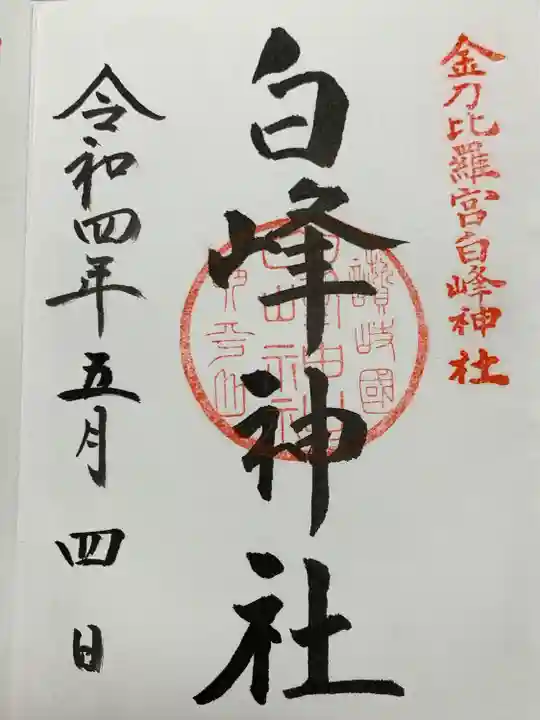 金刀比羅宮白峰神社
白峰神社
讃岐國
令和四年五月四日